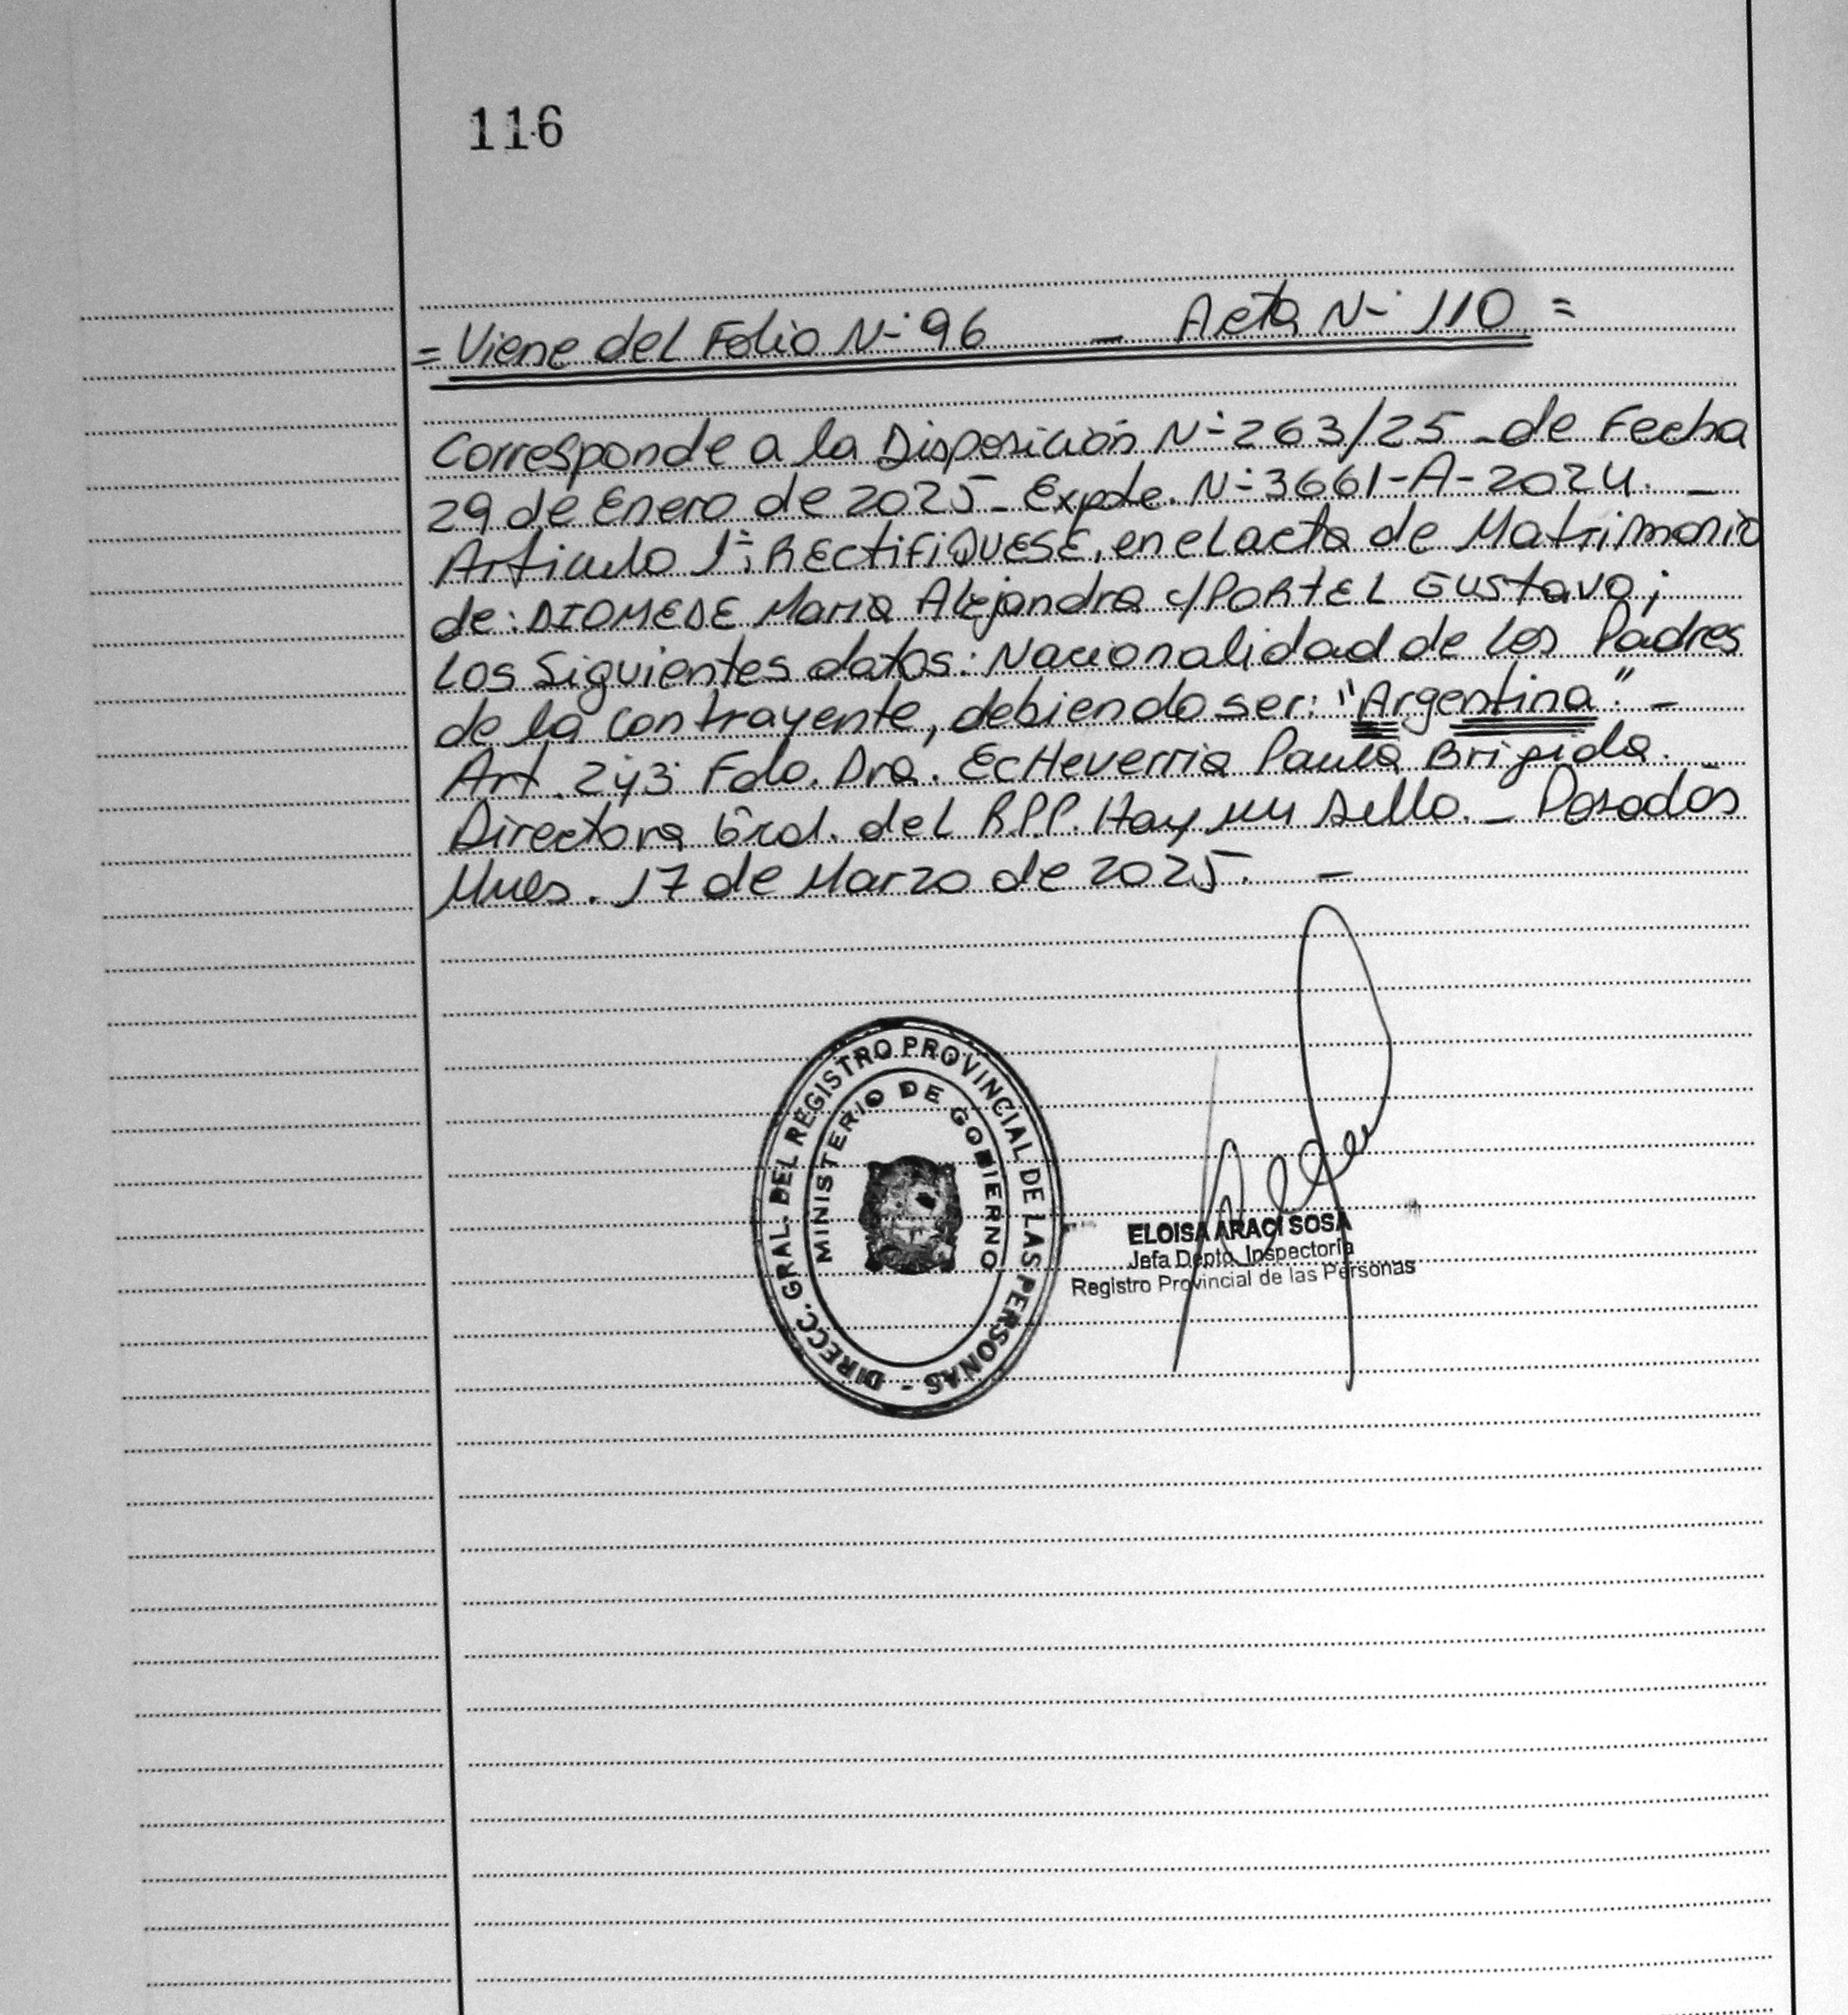 116
= Viene del Folio N° 96 — Acta N° 110 =
Corresponde a la Disposición N° 263/25 - de Fecha
29 de Enero de 2025 - Expte. N° 3661-A-2024. —
Artículo 1°: RECtiFiQUESE, en el acta de Matrimonio
de: DIOMEDE Maria Alejandra c/PORTEL Gustavo;
Los Siguientes datos: Nacionalidad de los Padres
de la contrayente, debiendo ser: "Argentina". —
Art. 2y3 Fdo. Dra. EcHeverria Paula Brigida.
Directora Gral. del R.P.P. Hay un sello. — Posadas
Mnes. 17 de Marzo de 2025. —
DIRECC. GRAL. DEL REGISTRO PROVINCIAL DE LAS PERSONAS -
MINISTERIO DE GOBIERNO
ELOISA ARACI SOSA
Jefa Depto. Inspectoria
Registro Provincial de las Personas